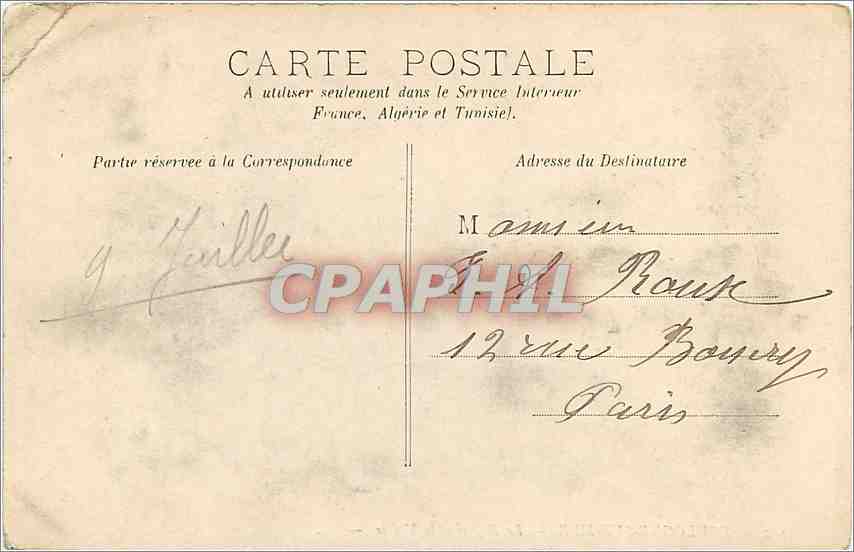 CARTE POSTALE
A utiliser seulement dans le Service Intérieur
France, Algérie et Tunisie).
Partie réservee à la Correspondance
Adresse du Destinataire
9 Juillet
CPAPHIL
Monsieur
Roux
12 rue
Paris